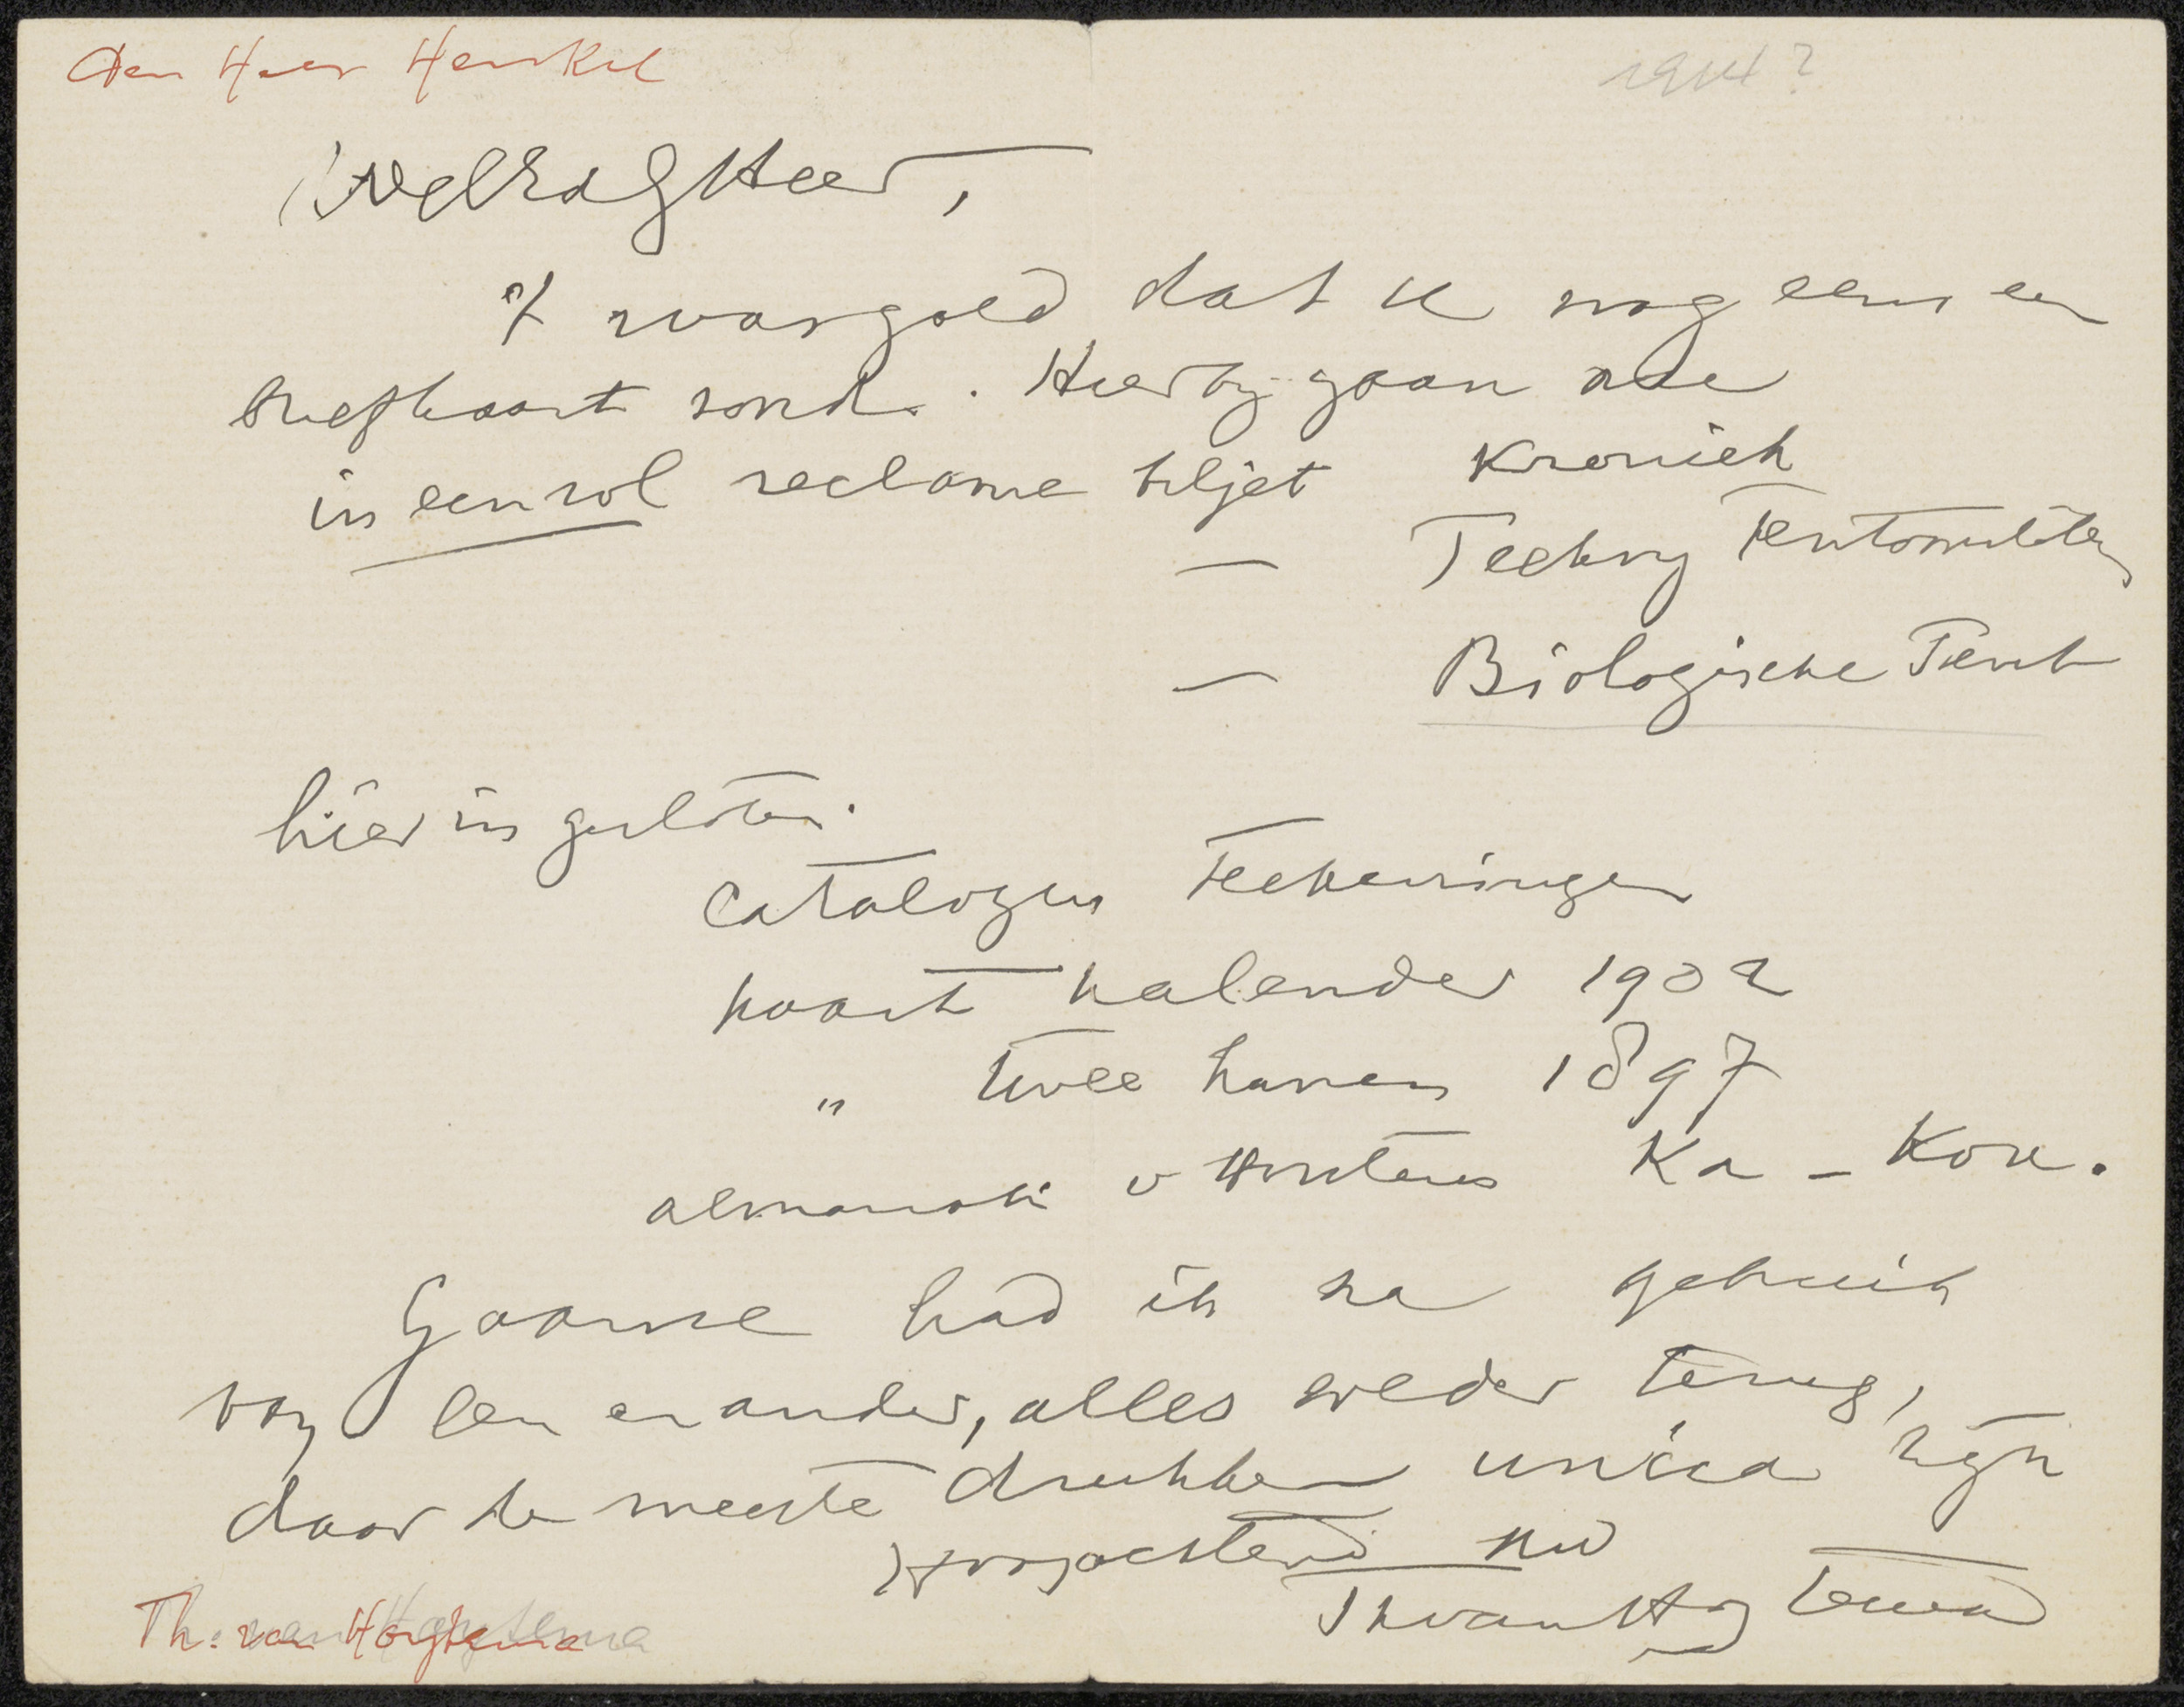 Den Heer Henkel
1914?
WelEdGHeer,
't was goed dat u nog eens een
briefkaart zond. Hierbij gaan
in een rol reclame biljet Kroniek
— Teekng Tentoonstelling
— Biologische Tent
hier in gesloten.
Catalogus Teekeningen
kaart kalender 1902
" twee hanen 1897
almanak v Houtens Ka-Kou.
Gaarne had ik na gebruik
van een en ander, alles weder terug,
daar de meeste drukken unica zijn
Hoogachtend uw
ThvanHoytema
Th. van Hoytema